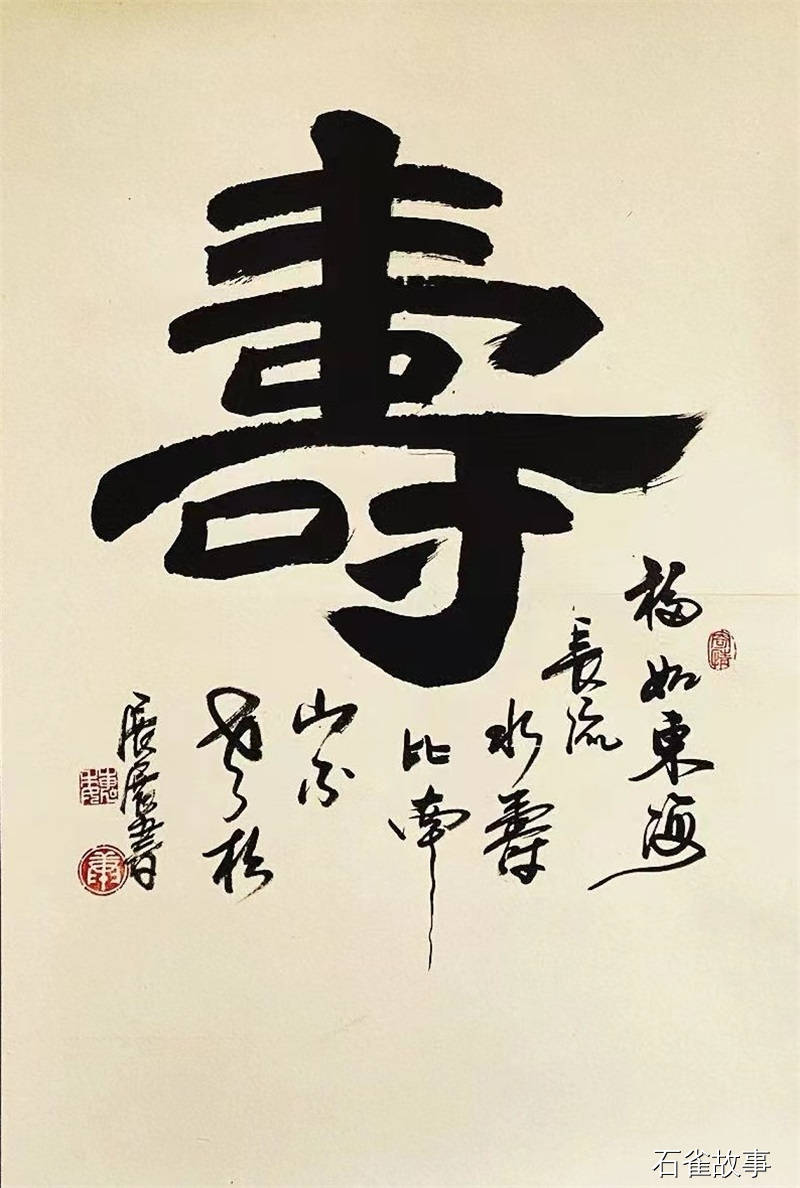 壽
福如東海
長流
水壽
比南
山不
老松
展展書
石雀故事